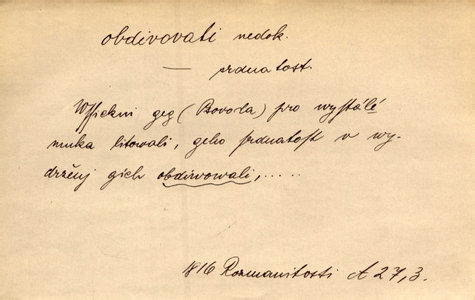 obdivovati nedok.
— srdnatost.
Wssickni geg (Bovoda) pro wystálé
muka litowali, geho srdnatost v wy-
držěnj gich obdivowali, .....
1816 Rozmanitosti A 27,3.